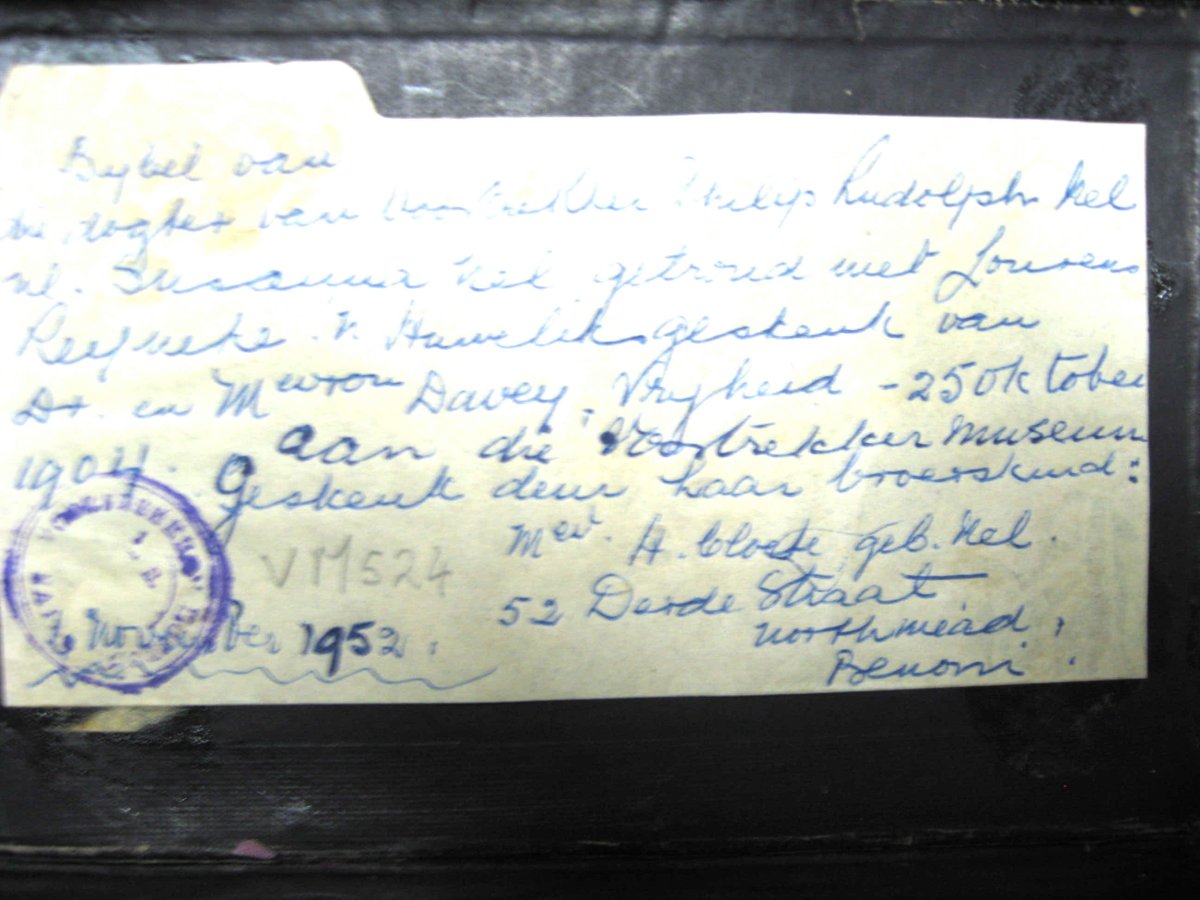 Bybel van
die dogter van Voortrekker Philip Rudolph Nel
nl. Susanna Nel getroud met Lourens
Reyneke. 'n Huweliksgeskenk van
Dr. en Mevrou Davey, Vryheid - 25 Oktober
1904. aan die Voortrekker Museum
Geskenk deur haar broerskind:
Mev. H. Cloete geb. Nel.
VM524
52 Derde Straat
Northmead,
November 1952.
Benoni.